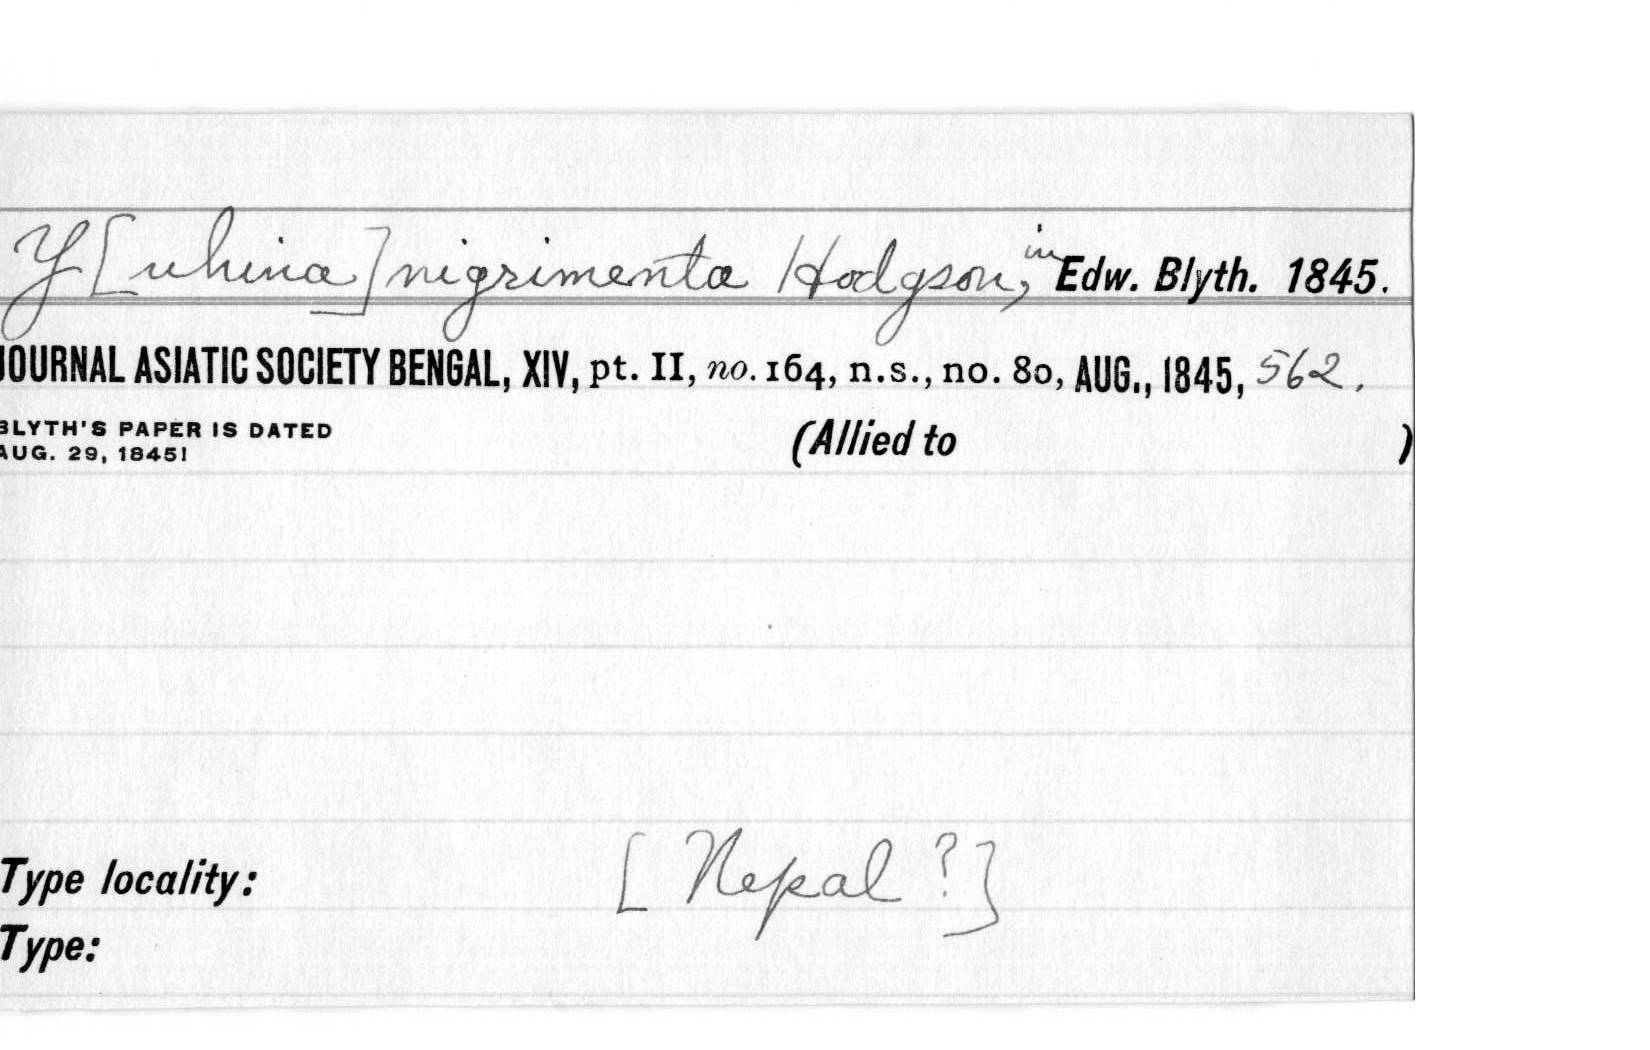 Y[uhina] nigrimenta Hodgson, in Edw. Blyth. 1845.
JOURNAL ASIATIC SOCIETY BENGAL, XIV, pt. II, no. 164, n.s., no. 80, AUG., 1845, 562.
BLYTH'S PAPER IS DATED
AUG. 29, 1845!
(Allied to )
Type locality: [Nepal ?]
Type: